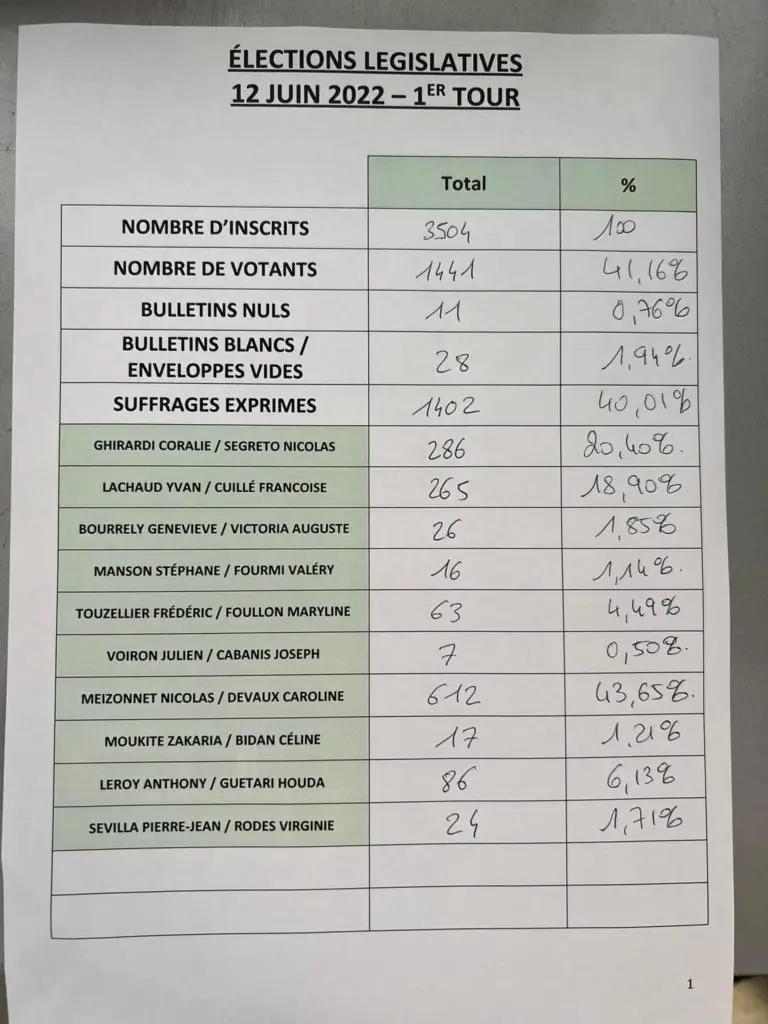 ÉLECTIONS LEGISLATIVES
12 JUIN 2022 – 1ER TOUR
Total %
NOMBRE D'INSCRITS 3504 100
NOMBRE DE VOTANTS 1441 41,16%
BULLETINS NULS 11 0,76%
BULLETINS BLANCS /
ENVELOPPES VIDES 28 1,94%.
SUFFRAGES EXPRIMES 1402 40,01%
GHIRARDI CORALIE / SEGRETO NICOLAS 286 20,40%.
LACHAUD YVAN / CUILLÉ FRANCOISE 265 18,90%
BOURRELY GENEVIEVE / VICTORIA AUGUSTE 26 1,85%
MANSON STÉPHANE / FOURMI VALÉRY 16 1,14%.
TOUZELLIER FRÉDÉRIC / FOULLON MARYLINE 63 4,49%
VOIRON JULIEN / CABANIS JOSEPH 7 0,50%.
MEIZONNET NICOLAS / DEVAUX CAROLINE 612 43,65%.
MOUKITE ZAKARIA / BIDAN CÉLINE 17 1,21%
LEROY ANTHONY / GUETARI HOUDA 86 6,13%
SEVILLA PIERRE-JEAN / RODES VIRGINIE 24 1,71%
1